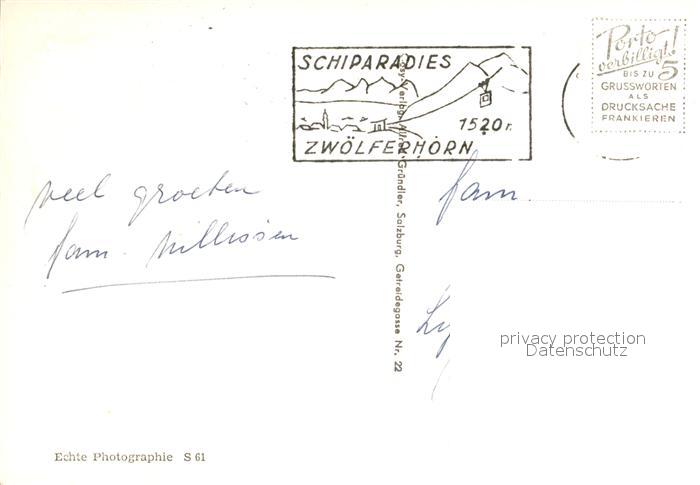 SCHIPARADIES
1520
ZWÖLFERHORN
Porto
verbilligt!
BIS ZU 5
GRUSSWORTEN
ALS
DRUCKSACHE
FRANKIEREN
Verlag Gründler, Salzburg, Getreidegasse Nr. 22
veel groeten
fam.
fam.
privacy protection
Datenschutz
Echte Photographie S 61